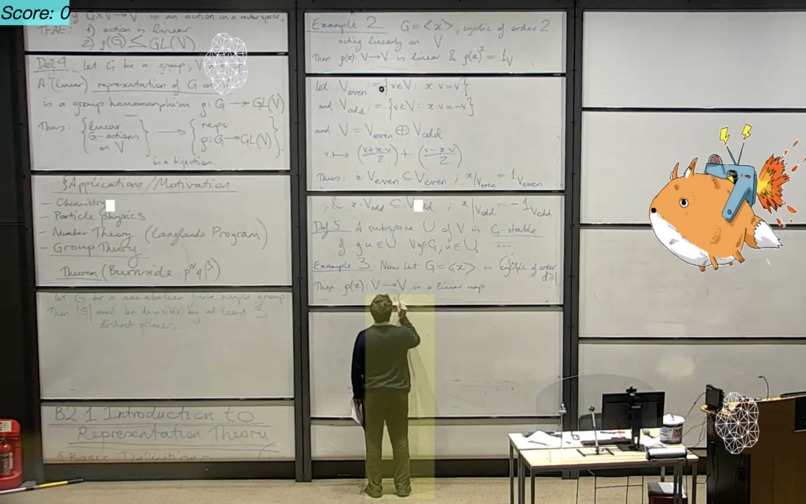 Score: 0
G×V→V is an action on a vector space.
TFAE: 1) action is linear
2) ρ(G) ≤ GL(V)
Def 4 Let G be a group, V
A (linear) representation of G on
is a group homomorphism ρ: G → GL(V)
Thus: {linear G-actions on V} → {reps ρ: G → GL(V)}
is a bijection.
§ Applications/Motivation
- Chemistry
- Particle physics
- Number Theory (Langlands Program)
- Group Theory
Theorem (Burnside p^α q^β)
Let G be a non-abelian finite simple group
Then |G| must be divisible by at least 3
distinct primes.
B2.1 Introduction to
Representation Theory
§ Basic Definitions
Example 2 G = <x>, cyclic of order 2
acting linearly on V.
Then ρ(x): V→V is linear & ρ(x)² = 1_V
Let V_even := {v∈V: x·v=v}
and V_odd := {v∈V: x·v=-v}
and V = V_even ⊕ V_odd
v ↦ (v+xv/2) + (v-xv/2)
Thus: x V_even ⊆ V_even, x|V_even = 1_V_even
& x·V_odd ⊆ V_odd, x|V_odd = -1_V_odd
Def 5 A subspace U of V is G-stable
if g·u∈U ∀g∈G, u∈U
Example 3 Now let G=<x> is cyclic of order d≥1
Then ρ(x): V→V is a linear map